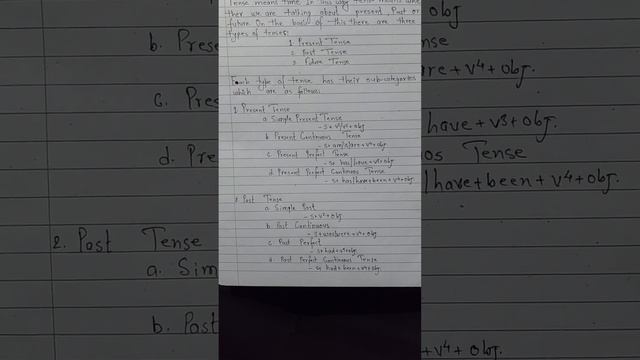 Tense means time. In this way tense means whe
ther we are talking about present, Past or
future. On the basis of this there are three
types of tenses:
1. Present Tense
2. Past Tense
3. Future Tense
Each type of tense has their sub-categories
which are as follows:
1. Present Tense
a. Simple Present Tense
- S + V1/V5 + Obj
b. Present Continuous Tense
- S + am/is/are + V4 + Obj
c. Present Perfect Tense
- S + has/have + V3 + Obj
d. Present Perfect Continuous Tense
- S + has/have + been + V4 + Obj.
2. Past Tense
a. Simple Past
- S + V2 + Obj
b. Past Continuous
- S + was/were + V4 + Obj
c. Past Perfect
- S + had + V3 + Obj.
d. Past Perfect Continuous Tense
- S + had + been + V4 + Obj.
Obj
b. Prese
nse
are + V4 + Obj.
c. Pre
have + V3 + Obj.
d. Pre
os Tense
/have + been + V4 + Obj.
2. Past Tense
a. Sim
b. Past
+ V4 + Obj.